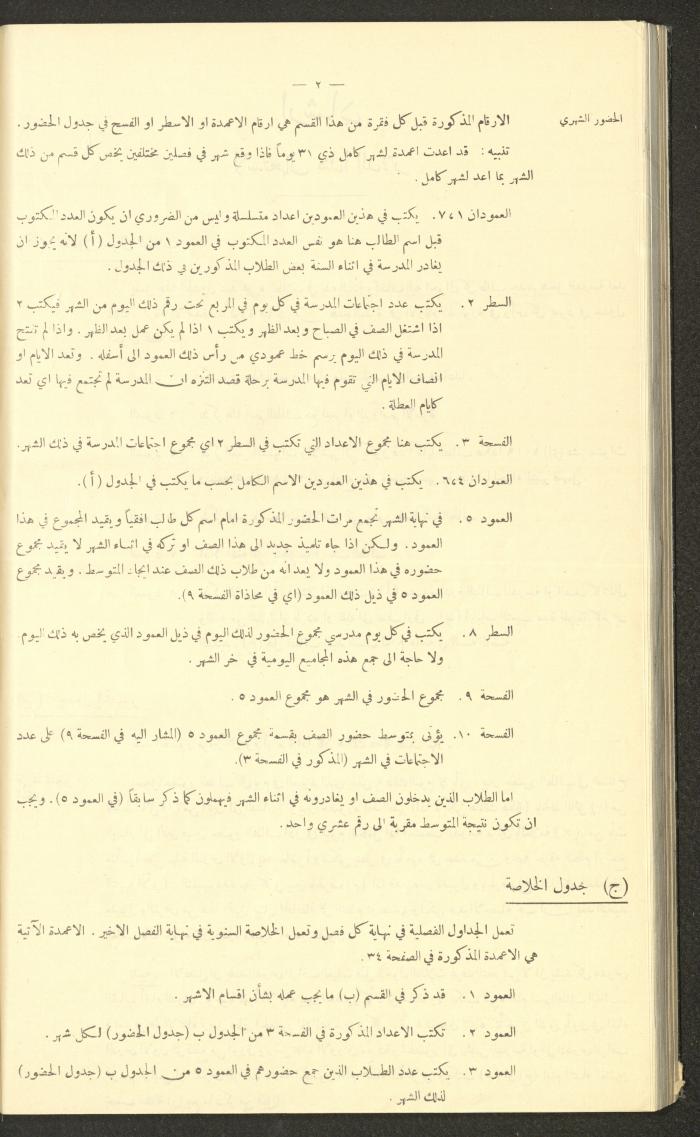 — ٢ —
الحضور الشهري
الارقام المذكورة قبل كل فقرة من هذا القسم هي ارقام الاعمدة او الاسطر او الفسح في جدول الحضور .
تنبيه : قد اعدت اعمدة لشهر كامل ذي ٣١ يوماً فاذا وقع شهر في فصلين مختلفين يخص كل قسم من ذلك
الشهر بما اعد لشهر كامل .
العمودان ١ ، ٧. يكتب في هذين العمودين اعداد متسلسلة وليس من الضروري ان يكون العدد المكتوب
قبل اسم الطالب هنا هو نفس العدد المكتوب في العمود ١ من الجدول (أ) لانه يجوز ان
يغادر المدرسة في اثناء السنة بعض الطلاب المذكورين في ذلك الجدول .
السطر ٢. يكتب عدد اجتماعات المدرسة في كل يوم في المربع تحت رقم ذلك اليوم من الشهر فيكتب ٢
اذا اشتغل الصف في الصباح وبعد الظهر ويكتب ١ اذا لم يكن عمل بعد الظهر . واذا لم تفتح
المدرسة في ذلك اليوم يرسم خط عمودي من رأس ذلك العمود الى أسفله . وتعد الايام او
انصاف الايام التي تقوم فيها المدرسة برحلة قصد التنزه ان المدرسة لم تجتمع فيها اي تعد
كايام العطلة .
الفسحة ٣. يكتب هنا مجموع الاعداد التي تكتب في السطر ٢ اي مجموع اجتماعات المدرسة في ذلك الشهر.
العمودان ٤ ، ٦. يكتب في هذين العمودين الاسم الكامل بحسب ما يكتب في الجدول (أ).
العمود ٥. في نهاية الشهر تجمع مرات الحضور المذكورة امام اسم كل طالب افقياً ويقيد المجموع في هذا
العمود . ولكن اذا جاء تلميذ جديد الى هذا الصف او تركه في اثناء الشهر لا يقيد مجموع
حضوره في هذا العمود ولا يعد انه من طلاب ذلك الصف عند ايجاد المتوسط . ويقيد مجموع
العمود ٥ في ذيل ذلك العمود (اي في محاذاة الفسحة ٩).
السطر ٨. يكتب في كل يوم مدرسي مجموع الحضور لذلك اليوم في ذيل العمود الذي يخص به ذلك اليوم
ولا حاجة الى جمع هذه المجاميع اليومية في خر الشهر .
الفسحة ٩. مجموع الحضور في الشهر هو مجموع العمود ٥ .
الفسحة ١٠. يؤتى بمتوسط حضور الصف بقسمة مجموع العمود ٥ (المشار اليه في الفسحة ٩) على عدد
الاجتماعات في الشهر (المذكور في الفسحة ٣).
اما الطلاب الذين يدخلون الصف او يغادرونه في اثناء الشهر فيهملون كما ذكر سابقاً (في العمود ٥) . ويجب
ان تكون نتيجة المتوسط مقربة الى رقم عشري واحد .
(ج) جدول الخلاصة
تعمل الجداول الفصلية في نهاية كل فصل وتعمل الخلاصة السنوية في نهاية الفصل الاخير . الاعمدة الآتية
هي الاعمدة المذكورة في الصفحة ٣٤ .
العمود ١. قد ذكر في القسم (ب) ما يجب عمله بشأن اقسام الاشهر .
العمود ٢. تكتب الاعداد المذكورة في الفسحة ٣ من الجدول ب (جدول الحضور) لكل شهر .
العمود ٣. يكتب عدد الطلاب الذين جمع حضورهم في العمود ٥ من الجدول ب (جدول الحضور)
لذلك الشهر .